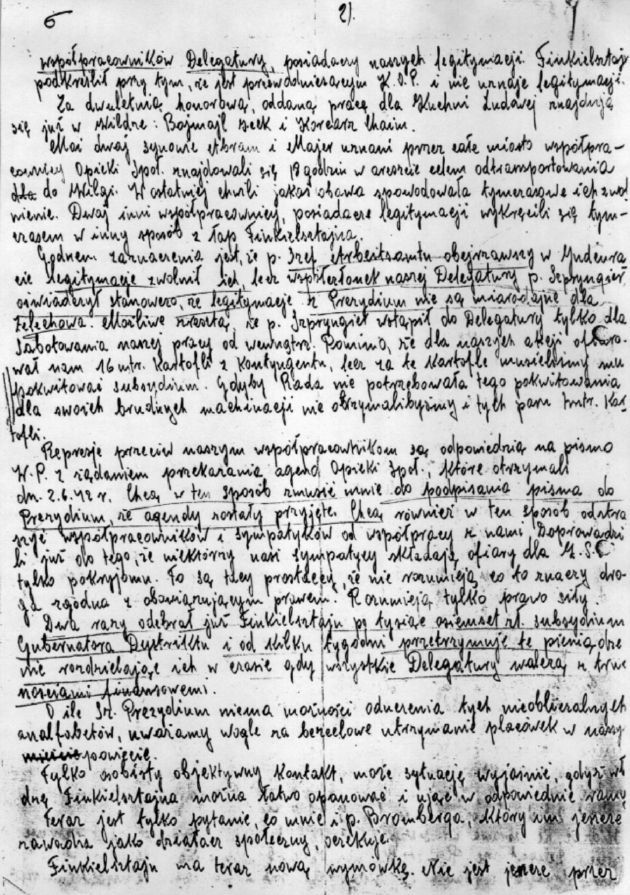 6 2).
współpracowników Delegatury, posiadaczy naszych legitymacji. Finkielsztajn
podkreślił przy tym, że jest przewodniczącym K.O.P. i nie uznaje legitymacji.
Za dwuletnią, honorową, oddaną pracę dla Kuchni Ludowej znajdują
się już w Wildze: Bojmajl Icek i Korcarz Chaim.
Moi dwaj synowie Abram i Majer uznani przez całe miasto współpra-
cownicy Opieki Społ. znajdowali się 18 godzin w areszcie celem odtransportowania
dla do Wilgi. W ostatniej chwili jakaś obawa spowodowała tymczasowe ich zwol
nienie. Dwaj inni współpracownicy, posiadacze legitymacji wykręcili się tym-
czasem w inny sposób z łap Finkielsztajna.
Godnem zaznaczenia jest, że p. Szef Arbeitsamtu obejrzawszy w Judenra-
cie legitymacje zwolnił ich lecz współczłonek naszej Delegatury p. Szpryngier
oświadczył stanowczo, że legitymacje z Prezydium nie są miarodajne dla
Żelechowa. Możliwe zresztą, że p. Szpryngier wstąpił do Delegatury tylko dla
sabotowania naszej pracy od wewnątrz. Pomimo, że dla naszych akcji ofiaro-
wał nam 16 mtr. kartofli z kontyngentu, lecz za te kartofle musieliśmy mu
pokwitować subsydium. Gdyby Rada nie potrzebowała tego pokwitowania
dla swoich brudnych machinacji nie otrzymalibyśmy i tych paru mtr. kar
tofli.
Represje przeciw naszym współpracownikom są odpowiedzią na pismo
W.P. z żądaniem przekazania agend Opieki Społ., które otrzymali
dn. 2.6.42 r. Chcą w ten sposób zmusić mnie do podpisania pisma do
Prezydium, że agendy zostały przyjęte. Chcą również w ten sposób odstra
szyć współpracowników i sympatyków od współpracy z nami. Doprowadzi
li już do tego, że niektórzy nasi sympatycy składają ofiary dla Ż.S.S.
tylko pokryjomu. To są tacy prostaccy, że nie rozumieją co to znaczy dro-
ga zgodna z obowiązującym prawem. Rozumieją tylko prawo siły.
Dwa razy odebrał już Finkielsztajn po tysiąc osiemset zł. subsydium
Gubernatora Dystriktu i od kilku tygodni przetrzymuje te pieniądze
nie rozdzielając ich w czasie gdy wszystkie Delegatury walczą z trud
nościami finansowemi.
O ile Sz. Prezydium niema możności oduczenia tych nieobliczalnych
analfabetów, uważamy wogle za bezcelowe utrzymanie placówek w naszym
powiecie.
Tylko osobisty objektywny kontakt, może sytuację wyjaśnić, gdyż wła
dzę Finkielsztajna można łatwo opanować i ująć w odpowiednie ramy.
Teraz jest tylko pytanie, co mnie i p. Bromberga, który im jeszcze
zawadza jako działacz społeczny, oczekuje.
Finkielsztajn ma teraz nową wymówkę. Nie jest jeszcze przez